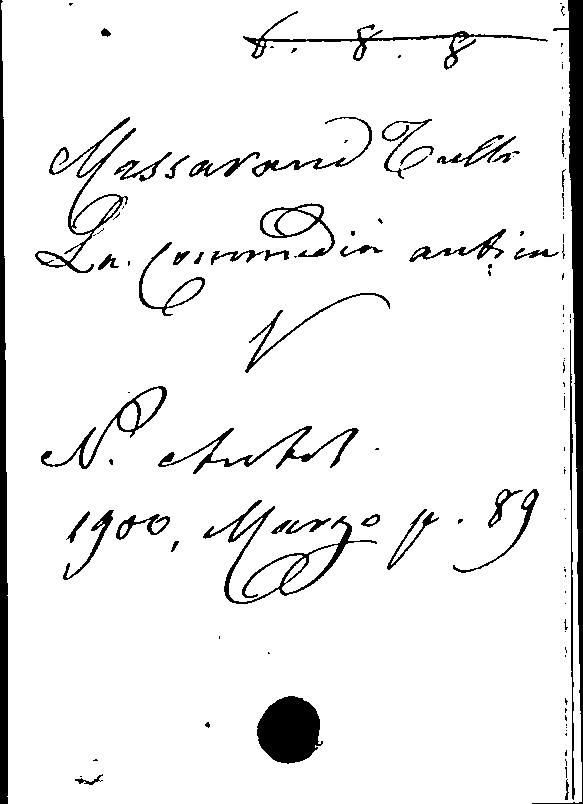 6. 8. 8
Massarani Tullo
La Commedia antica
V
N. Antol.
1900, Marzo p. 89